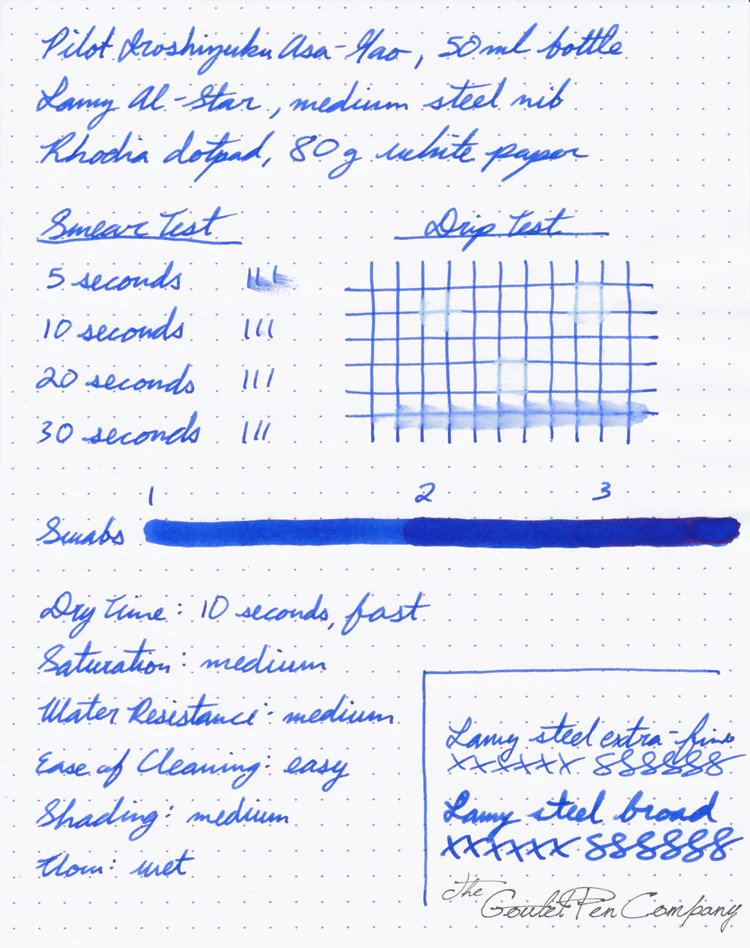 Pilot Iroshizuku Asa-Gao, 50ml bottle
Lamy Al-Star, medium steel nib
Rhodia dotpad, 80g white paper
Smear Test
5 seconds III
10 seconds III
20 seconds III
30 seconds III
Drip Test
1 2 3
Swabs
Dry Time: 10 seconds, fast
Saturation: medium
Water Resistance: medium
Ease of Cleaning: easy
Shading: medium
Flow: wet
Lamy steel extra-fine
xxxxxx 888888
Lamy steel broad
xxxxxx 888888
The Goulet Pen Company